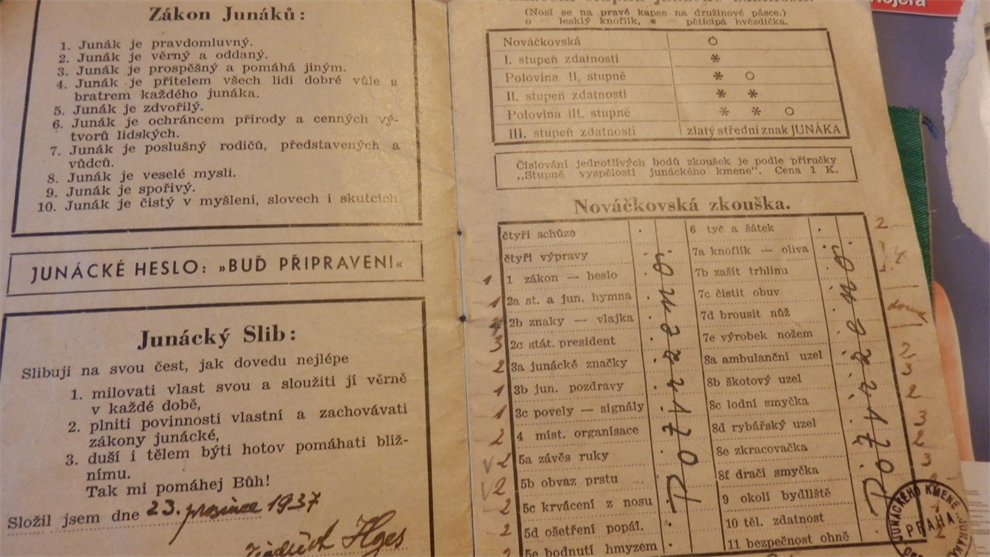 Zákon Junáků:
1. Junák je pravdomluvný.
2. Junák je věrný a oddaný.
3. Junák je prospěšný a pomáhá jiným.
4. Junák je přítelem všech lidi dobré vůle a
bratrem každého junáka.
5. Junák je zdvořilý.
6. Junák je ochráncem přírody a cenných vý-
tvorů lidských.
7. Junák je poslušný rodičů, představených a
vůdců.
8. Junák je veselé mysli.
9. Junák je spořivý.
10. Junák je čistý v myšlení, slovech i skutcích.
JUNÁCKÉ HESLO: »BUĎ PŘIPRAVEN!«
Junácký Slib:
Slibuji na svou čest, jak dovedu nejlépe
1. milovati vlast svou a sloužiti jí věrně
v každé době,
2. plniti povinnosti vlastní a zachovávati
zákony junácké,
3. duší i tělem býti hotov pomáhati bliž-
nímu.
Tak mi pomáhej Bůh!
Složil jsem dne 23. prosince 1937
(Nosí se na pravé kapse na družinové pásce.)
o lesklý knoflík, * = pěticípá hvězdička.
Nováčkovská o
I. stupeň zdatnosti *
Polovina II. stupně * o
II. stupeň zdatnosti * *
Polovina III. stupně * * o
III. stupeň zdatnosti zlatý střední znak JUNÁKA
Číslování jednotlivých bodů zkoušek je podle příručky
„Stupně vyspělosti junáckého kmene". Cena 1 K.
Nováčkovská zkouška.
čtyři schůze
čtyři výpravy
1 zákon — heslo
2a st. a jun. hymna
2b znaky — vlajka
2c stát. president
3a junácké značky
3b jun. pozdravy
3c povely — signály
4 míst. organisace
5a závěs ruky
5b obvaz prstu
5c krvácení z nosu
5d ošetření popál.
5e bodnutí hmyzem
Potvrzeno
6 tyč a šátek
7a knoflík — oliva
7b zašít trhlinu
7c čistit obuv
7d brousit nůž
7e výrobek nožem
8a ambulanční uzel
8b škotový uzel
8c lodní smyčka
8d rybářský uzel
8e zkracovačka
8f dračí smyčka
9 okolí bydliště
10 těl. zdatnost
11 bezpečnost ohně
Potvrzeno
JUNÁCKÉHO KMENE
PRAHA